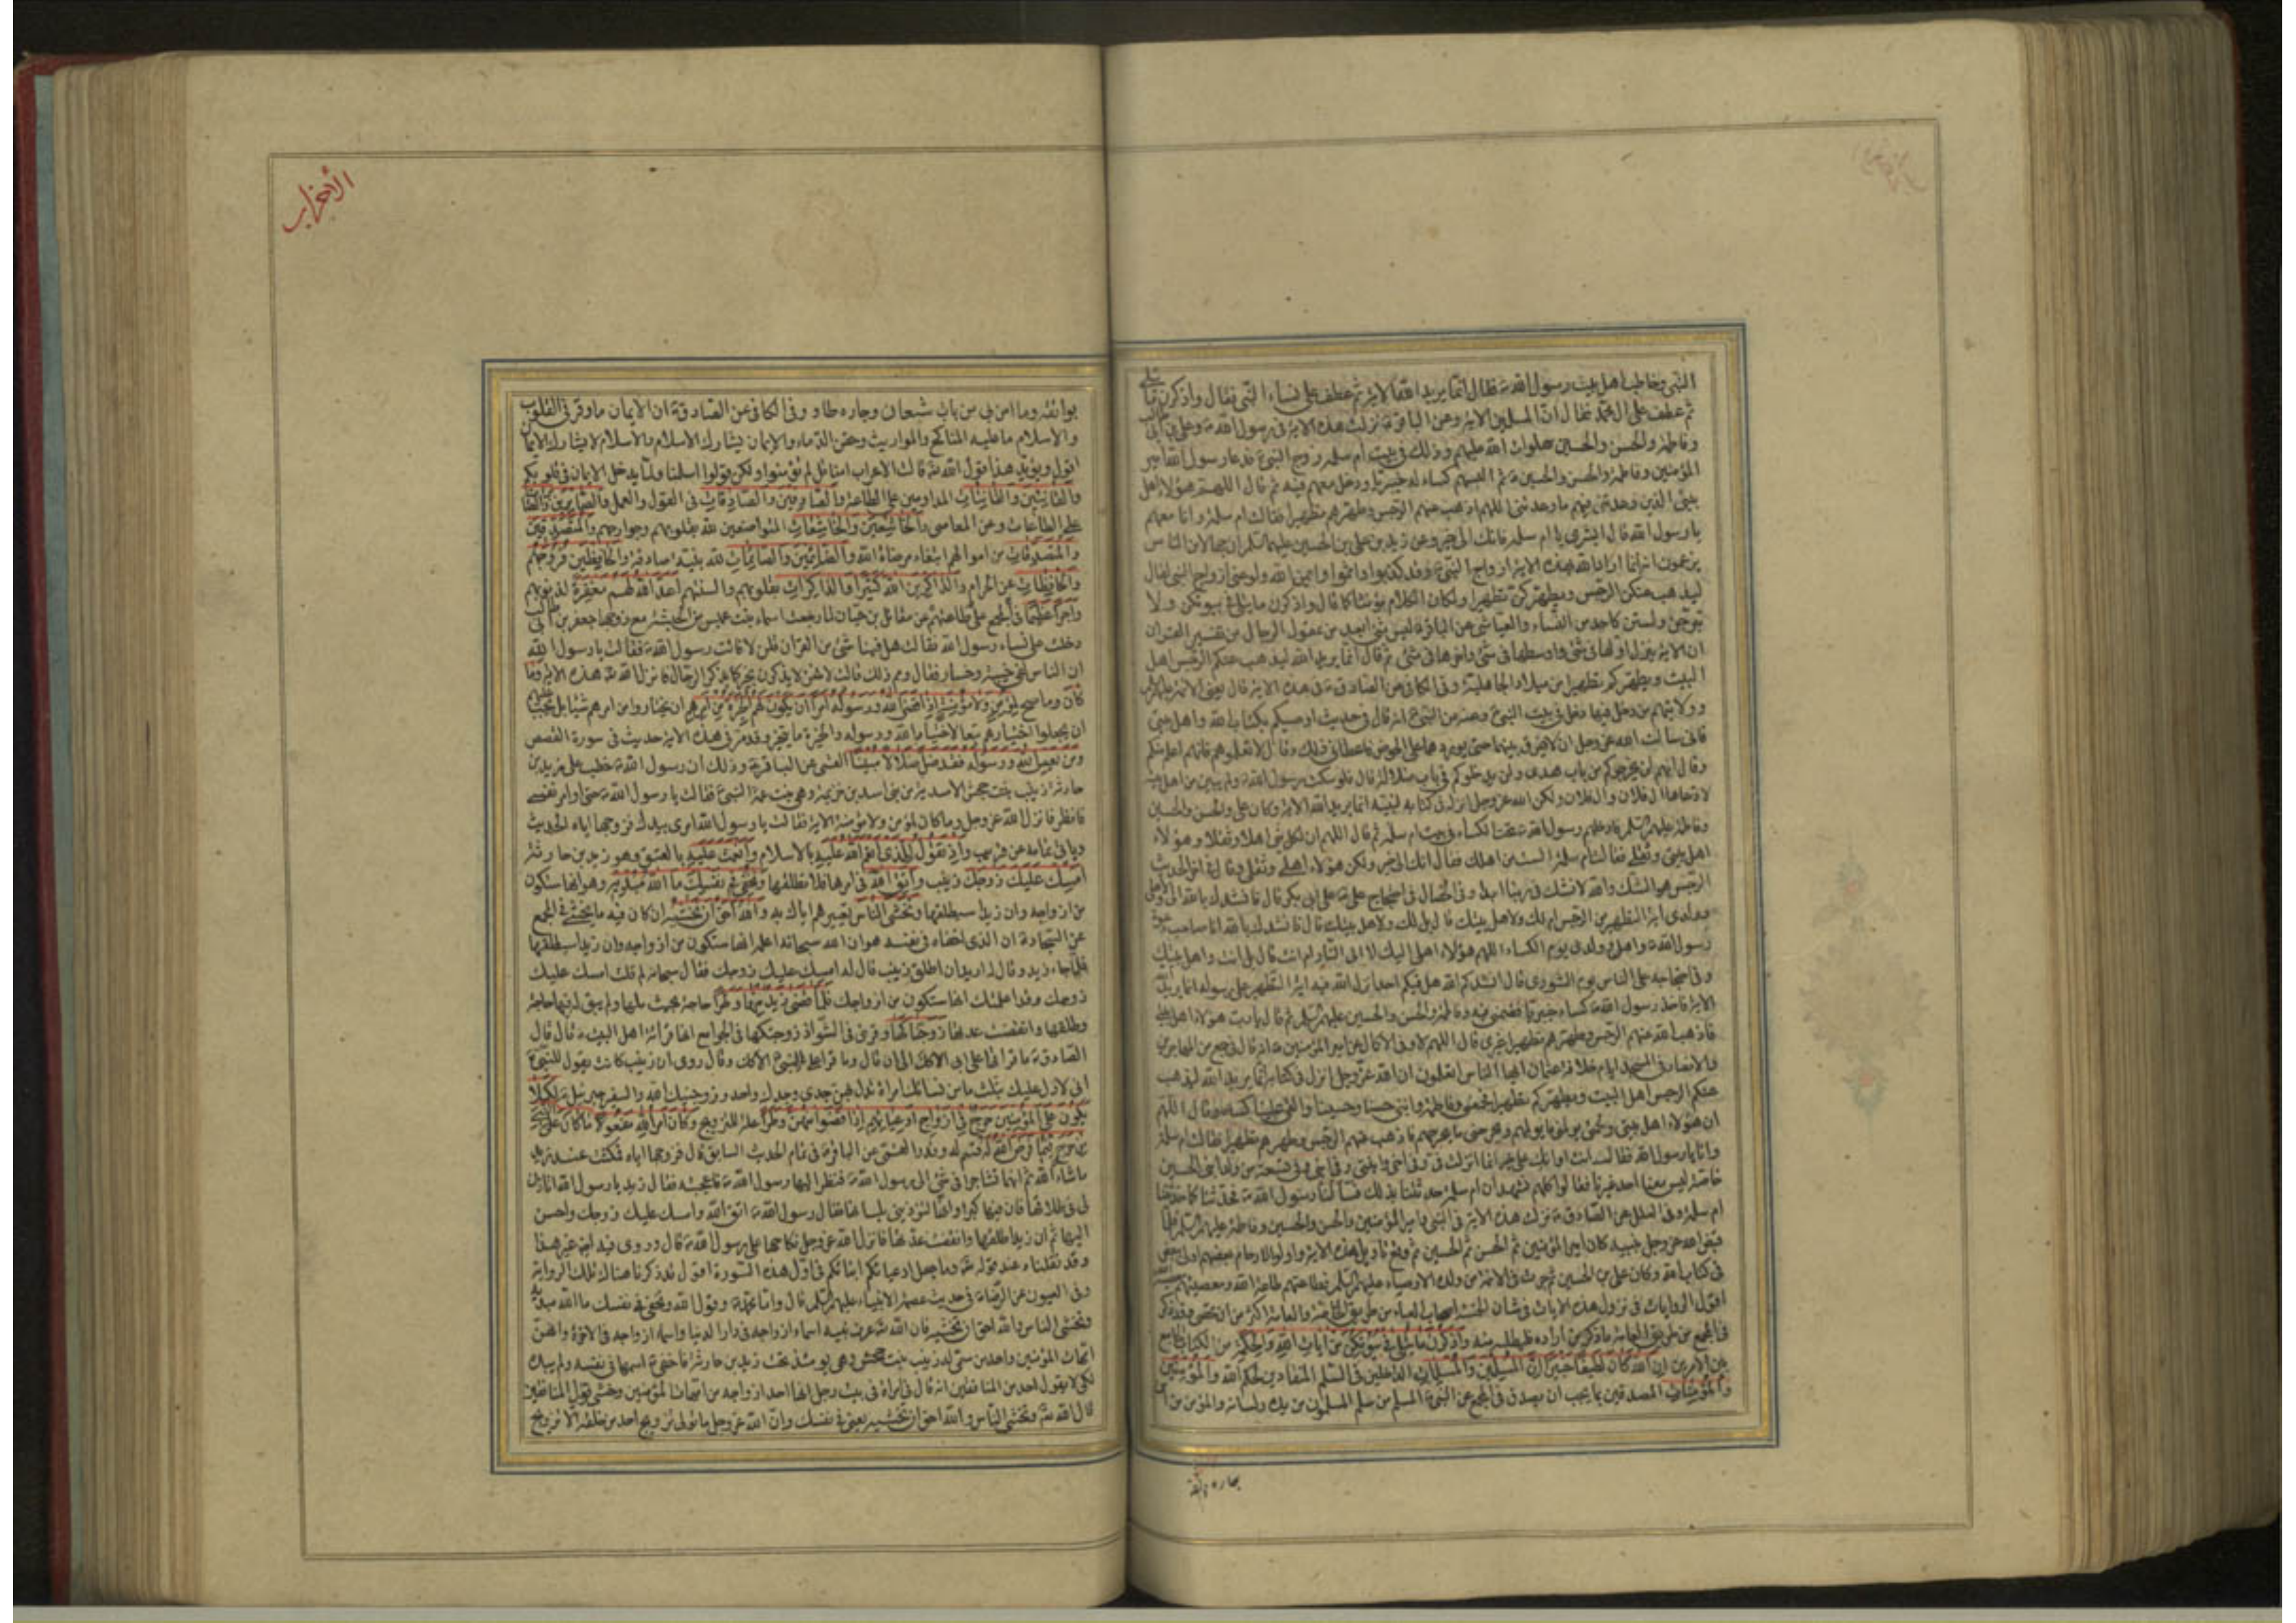 النبي وخاطب اهل بيت رسول الله ص فقال انما يريد الله الاية ثم عطف على نساء النبي فقال واذكرن ما يتلى
ثم عطف على ال محمد فقال ان المسلمين الاية وعن الباقر ع نزلت هذه الاية في رسول الله ص وعلي بن ابي طالب
وفاطمة والحسن والحسين صلوات الله عليهم وذلك في بيت ام سلمة زوج النبي ص فدعا رسول الله امير
المؤمنين وفاطمة والحسن والحسين ع ثم البسهم كساء له خيبريا ودخل معهم فيه ثم قال اللهم هؤلاء اهل
بيتي الذين وعدتني فيهم ما وعدتني اللهم اذهب عنهم الرجس وطهرهم تطهيرا فقالت ام سلمة وانا معهم
يا رسول الله قال ابشري يا ام سلمة فانك الى خير وعن زيد بن علي بن الحسين عليهما السلم ان جهالا من الناس
يزعمون انه انما اراد الله بهذه الاية ازواج النبي ص وقد كذبوا واثموا وايم الله ولو عنى ازواج النبي لقال
ليذهب عنكن الرجس ويطهركن تطهيرا ولكان الكلام مؤنثا كما قال واذكرن ما يتلى في بيوتكن ولا
تبرجن ولستن كاحد من النساء والعياشي عن الباقر ع ليس شئ ابعد من عقول الرجال من تفسير القران
ان الاية ينزل اولها في شئ واوسطها في شئ واخرها في شئ ثم قال انما يريد الله ليذهب عنكم الرجس اهل
البيت ويطهركم تطهيرا من ميلاد الجاهلية وفي الكافي عن الصادق ع في هذه الاية قال يعني الائمة عليهم السلم
وولايتهم من دخل فيها دخل في بيت النبي ص وعنه عن النبي ص انه قال في حديث اوصيكم بكتاب الله واهل بيتي
فاني سالت الله عز وجل ان لا يفرق بينهما حتى يوردهما على الحوض فاعطاني ذلك وقال لا تعلموهم فانهم اعلم منكم
وقال انهم لن يخرجوكم من باب هدى ولن يدخلوكم في باب ضلالة قال فلو سكت رسول الله ص ولم يبين من اهل بيته
لادعاها ال فلان وال فلان ولكن الله عز وجل انزل في كتابه لنبيه انما يريد الله الاية وكان علي والحسن والحسين
وفاطمة عليهم السلم فادخلهم رسول الله ص تحت الكساء في بيت ام سلمة ثم قال اللهم ان لكل نبي اهلا وثقلا وهؤلاء
اهل بيتي وثقلي فقالت ام سلمة الست من اهلك فقال انك الى خير ولكن هؤلاء اهلي وثقلي وقال في اخر الحديث
الرجس هو الشك والله لا نشك في ربنا ابدا وفي الخصال في احتجاج علي ع على ابي بكر قال فانشدك بالله الي ولاهلي
وولدي اية التطهير من الرجس ام لك ولاهل بيتك قال بل لك ولاهل بيتك قال فانشدك بالله انا صاحب دعوة
رسول الله ص واهلي وولدي يوم الكساء اللهم هؤلاء اهلي اليك لا الى النار ام انت قال بل انت واهل بيتك
وفي احتجاجه على الناس يوم الشورى قال انشدكم الله هل فيكم احد انزل الله فيه اية التطهير على رسوله انما يريد الله
الاية فاخذ رسول الله ص كساء خيبريا فضمني فيه وفاطمة والحسن والحسين عليهم السلم ثم قال يا رب هؤلاء اهل بيتي
فاذهب عنهم الرجس وطهرهم تطهيرا غيري قال اللهم لا وفي الاكمال عن امير المؤمنين ع انه قال في جمع من المهاجرين
والانصار في المسجد ايام خلافة عثمان ايها الناس اتعلمون ان الله عز وجل انزل في كتابه انما يريد الله ليذهب
عنكم الرجس اهل البيت ويطهركم تطهيرا فجمعني وفاطمة وابني حسنا وحسينا والقى علينا كساء وقال اللهم
ان هؤلاء اهل بيتي ولحمتي يؤلمني ما يؤلمهم ويجرحني ما يجرحهم فاذهب عنهم الرجس وطهرهم تطهيرا فقالت ام سلمة
وانا يا رسول الله فقال انت او انك على خير انما انزلت في وفي اخي وابنتي وفي ابني وفي تسعة من ولد ابني الحسين
خاصة ليس معنا احد غيرنا فقالوا كلهم نشهد ان ام سلمة حدثتنا بذلك فسالنا رسول الله ص فحدثنا كما حدثتنا
ام سلمة وفي العلل عن الصادق ع نزلت هذه الاية في النبي وامير المؤمنين والحسن والحسين وفاطمة عليهم السلم فلما
قبض الله عز وجل نبيه كان امير المؤمنين ثم الحسن ثم الحسين ثم وقع تاويل هذه الاية واولوا الارحام بعضهم اولى ببعض
في كتاب الله وكان علي بن الحسين ثم جرت في الائمة من ولده الاوصياء عليهم السلم فطاعتهم طاعة الله ومعصيتهم معصية الله
اقول الروايات في نزول هذه الايات في شان الخمسة اصحاب العباء من طريق الخاصة والعامة اكثر من ان تحصى وقد ذكر
في المجمع من طريق العامة ما ذكر من اراده فليطلبه منه واذكرن ما يتلى في بيوتكن من ايات الله والحكمة من الكتاب الجامع
بين الامرين ان الله كان لطيفا خبيرا ان المسلمين والمسلمات الداخلين في السلم المنقادين لحكم الله والمؤمنين
والمؤمنات المصدقين بما يجب ان يصدق في المجمع عن النبي ص المسلم من سلم المسلمون من يده ولسانه والمؤمن من امن
جاره بوائقه
الأحزاب
بوائقه وما امن بي من بات شبعان وجاره طاو وفي الكافي عن الصادق ع ان الايمان ما وقر في القلوب
والاسلام ما عليه المناكح والمواريث وحقن الدماء والايمان يشارك الاسلام والاسلام لا يشارك الايمان
اقول ويؤيد هذا قول الله تع قالت الاعراب امنا قل لم تؤمنوا ولكن قولوا اسلمنا ولما يدخل الايمان في قلوبكم
والقانتين والقانتات المداومين على الطاعة والصادقين والصادقات في القول والعمل والصابرين والصابرات
على الطاعات وعن المعاصي والخاشعين والخاشعات المتواضعين لله بقلوبهم وجوارحهم والمتصدقين
والمتصدقات من اموالهم ابتغاء مرضاة الله والصائمين والصائمات لله بنية صادقة والحافظين فروجهم
والحافظات عن الحرام والذاكرين الله كثيرا والذاكرات بقلوبهم والسنتهم اعد الله لهم مغفرة لذنوبهم
واجرا عظيما في المجمع على طاعتهم عن مقاتل بن حيان لما رجعت اسماء بنت عميس من الحبشة مع زوجها جعفر بن ابي طالب
دخلت على نساء رسول الله فقالت هل فينا شئ من القران قلن لا فاتت رسول الله ص فقالت يا رسول الله
ان النساء لفي خيبة وخسار فقال ومم ذلك قالت لانهن لا يذكرن بخير كما يذكر الرجال فانزل الله تع هذه الاية وما
كان وما صح لمؤمن ولا مؤمنة اذا قضى الله ورسوله امرا ان يكون لهم الخيرة من امرهم ان يختاروا من امرهم شيئا بل يجب عليهم
ان يجعلوا اختيارهم تبعا لاختيار الله ورسوله والخيرة ما يتخير وقد مر في هذه الاية حديث في سورة القصص
ومن يعص الله ورسوله فقد ضل ضلالا مبينا القمي عن الباقر ع وذلك ان رسول الله ص خطب على زيد بن
حارثة زينب بنت جحش الاسدية من بني اسد بن خزيمة وهي بنت عمة النبي ص فقالت يا رسول الله ص حتى اوامر نفسي
فانظر فانزل الله عز وجل وما كان لمؤمن ولا مؤمنة الاية فقالت يا رسول الله امري بيدك فزوجها اياه الحديث
وياتي تمامه عن قريب واذ تقول للذي انعم الله عليه بالاسلام وانعمت عليه بالعتق وهو زيد بن حارثة
امسك عليك زوجك زينب واتق الله في امرها فلا تطلقها وتخفي في نفسك ما الله مبديه وهو انها ستكون
من ازواجه وان زيدا سيطلقها وتخشى الناس تعييرهم اياك به والله احق ان تخشيه ان كان فيه ما يخشى في المجمع
عن السجاد ع ان الذي اخفاه في نفسه هو ان الله سبحانه اعلمه انها ستكون من ازواجه وان زيدا سيطلقها
فلما جاء زيد وقال له اريد ان اطلق زينب قال له امسك عليك زوجك فقال سبحانه لم قلت امسك عليك
زوجك وقد اعلمتك انها ستكون من ازواجك فلما قضى زيد منها وطرا حاجة بحيث ملها ولم يبق له فيها حاجة
وطلقها وانقضت عدتها زوجناكها وقرئ في الشواذ زوجتكها في الجوامع انها قراءة اهل البيت ع قال قال
الصادق ع ما قراتها على ابي الا كذلك الى ان قال وما قرا علي على النبي ص الا كذلك وقال روي ان زينب كانت تقول للنبي ص
اني لادل عليك بثلث ما من نسائك امراة تدل بهن جدي وجدك واحد وزوجنيك الله والسفير جبرئيل ع لكيلا
يكون على المؤمنين حرج في ازواج ادعيائهم اذا قضوا منهن وطرا علة للتزويج وكان امر الله مفعولا ما كان على النبي
من حرج فيما فرض الله له قسم له وقدر القمي عن الباقر ع في تمام الحديث السابق قال فزوجها اياه فمكثت عند زيد
ما شاء الله ثم انهما تشاجرا في شئ الى رسول الله ص فنظر اليها رسول الله ص فاعجبته فقال زيد يا رسول الله ائذن
لي في طلاقها فان فيها كبرا وانها لتؤذيني بلسانها فقال رسول الله ص اتق الله وامسك عليك زوجك واحسن
اليها ثم ان زيدا طلقها وانقضت عدتها فانزل الله عز وجل نكاحها على رسول الله ص قال وروي فيه ايضا غير هذا
وقد نقلناه عند قوله تع وما جعل ادعيائكم ابنائكم في اول هذه السورة اقول قد ذكرنا هناك تلك الرواية
وفي العيون عن الرضا ع في حديث عصمة الانبياء عليهم السلم قال واما محمد ص وقول الله وتخفي في نفسك ما الله مبديه
وتخشى الناس والله احق ان تخشيه فان الله تع عرف نبيه اسماء ازواجه في دار الدنيا واسماء ازواجه في الاخرة وانهن
امهات المؤمنين واحدة من سمي له زينب بنت جحش وهي يومئذ تحت زيد بن حارثة فاخفى ص اسمها في نفسه ولم يبده
لكي لا يقول احد من المنافقين انه قال في امراة في بيت رجل انها احد ازواجه من امهات المؤمنين وخشي قول المنافقين
قال الله تع وتخشى الناس والله احق ان تخشيه يعني في نفسك وان الله عز وجل ما تولى تزويج احد من خلقه الا تزويج